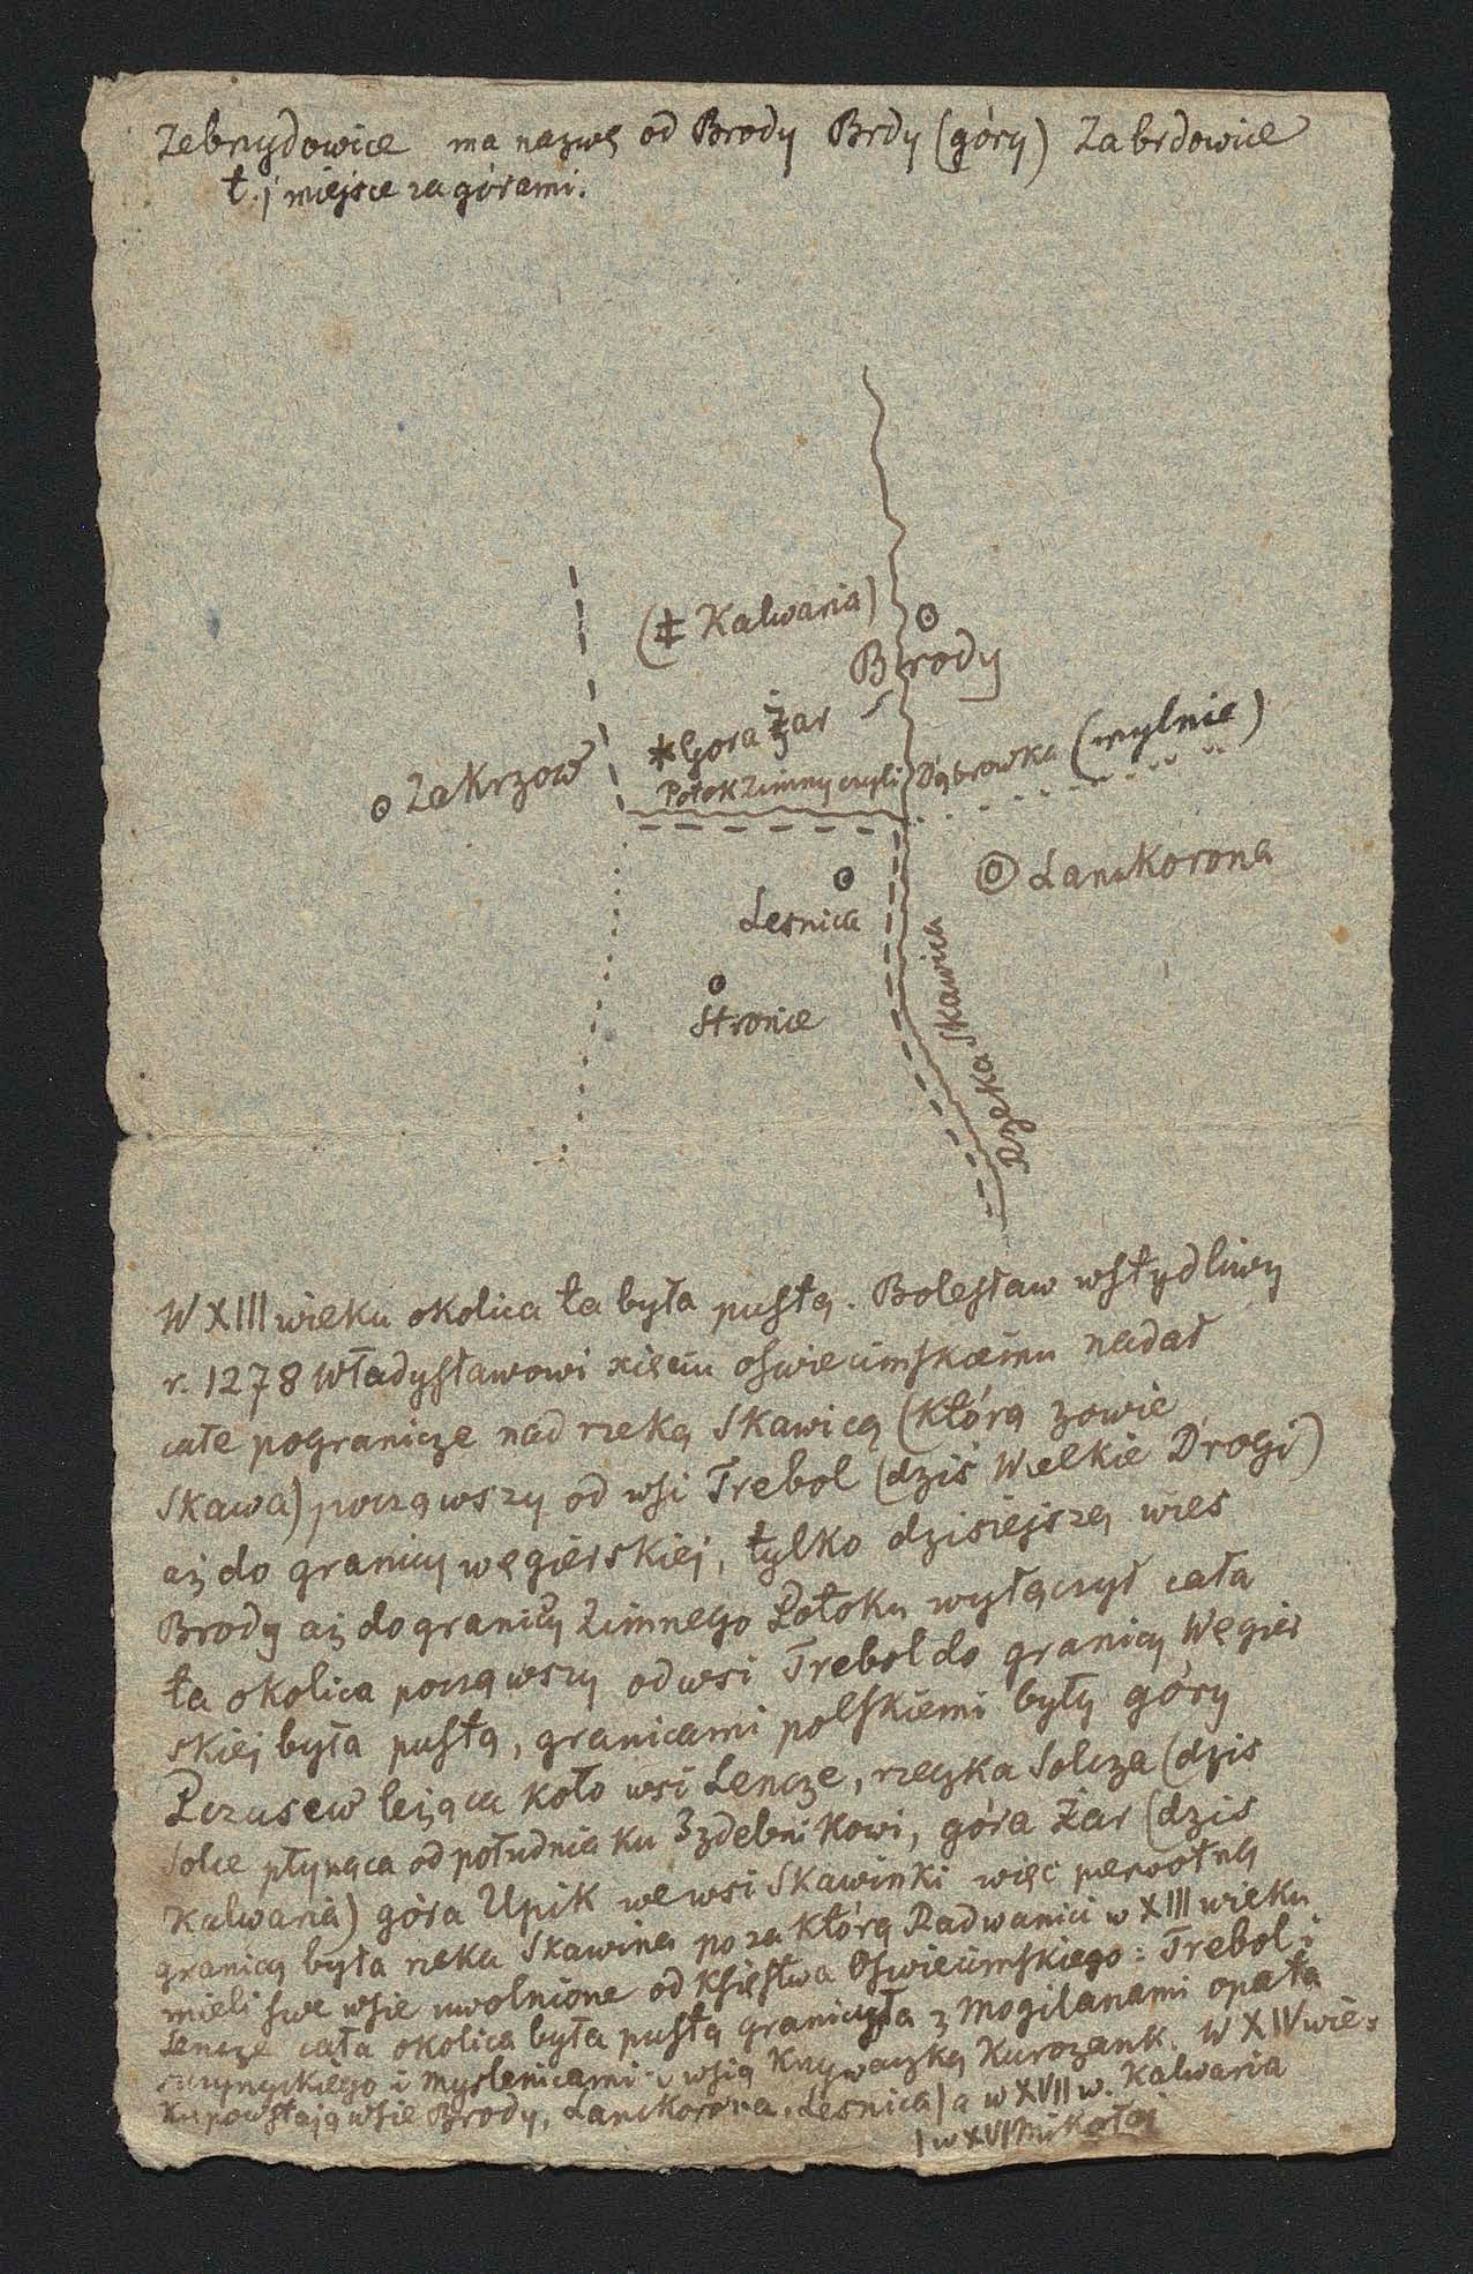 Zebrzydowice ma nazwę od Brody Brdy (góry) Zabrdowice
t.j miejsce za górami.
(‡ Kalwaria)
Brody
*Gora Żar
Zakrzow
Potok Zimny czyli Dąbrowka (mylnie)
Lanckorona
Lesnica
Stronie
Rzeka Skawica
W XIII wieku okolica ta była pustą. Bolesław wstydliwy
r. 1278 Władysławowi xięciu oswiecimskiemu nadał
całe pogranicze nad rzeką Skawicą (którą zowie
Skawa) począwszy od wsi Trebol (dziś Wielkie Drogi)
aż do granicy węgierskiej, tylko dzisiejszą wieś
Brody aż do granicy Zimnego Potoku wyłączył cała
ta okolica począwszy od wsi Trebol do granicy Węgier
skiej była pustą, granicami polskiemi były góry
leżąca koło wsi Lencze, rzeczka Solcza (dzis
Solce płynąca od południa ku Zzdebnikowi, góra Żar (dzis
Kalwaria) góra Upik we wsi Skawinki więc pierwotną
granicą była rzeka Skawina po za którą Radwanici w XIII wieku
mieli swe wsie uwolnione od Księstwa Oswiecimskiego: Trebol i
Lencze cała okolica była pustą graniczyła z Mogilanami opata
i Myslenicami i wsią Krzywaczką Kurozank. W XIV wie-
ku powstają wsie Brody, Lanckorona, Lesnica | a w XVII w. Kalwaria
| w XVI Mikołaj